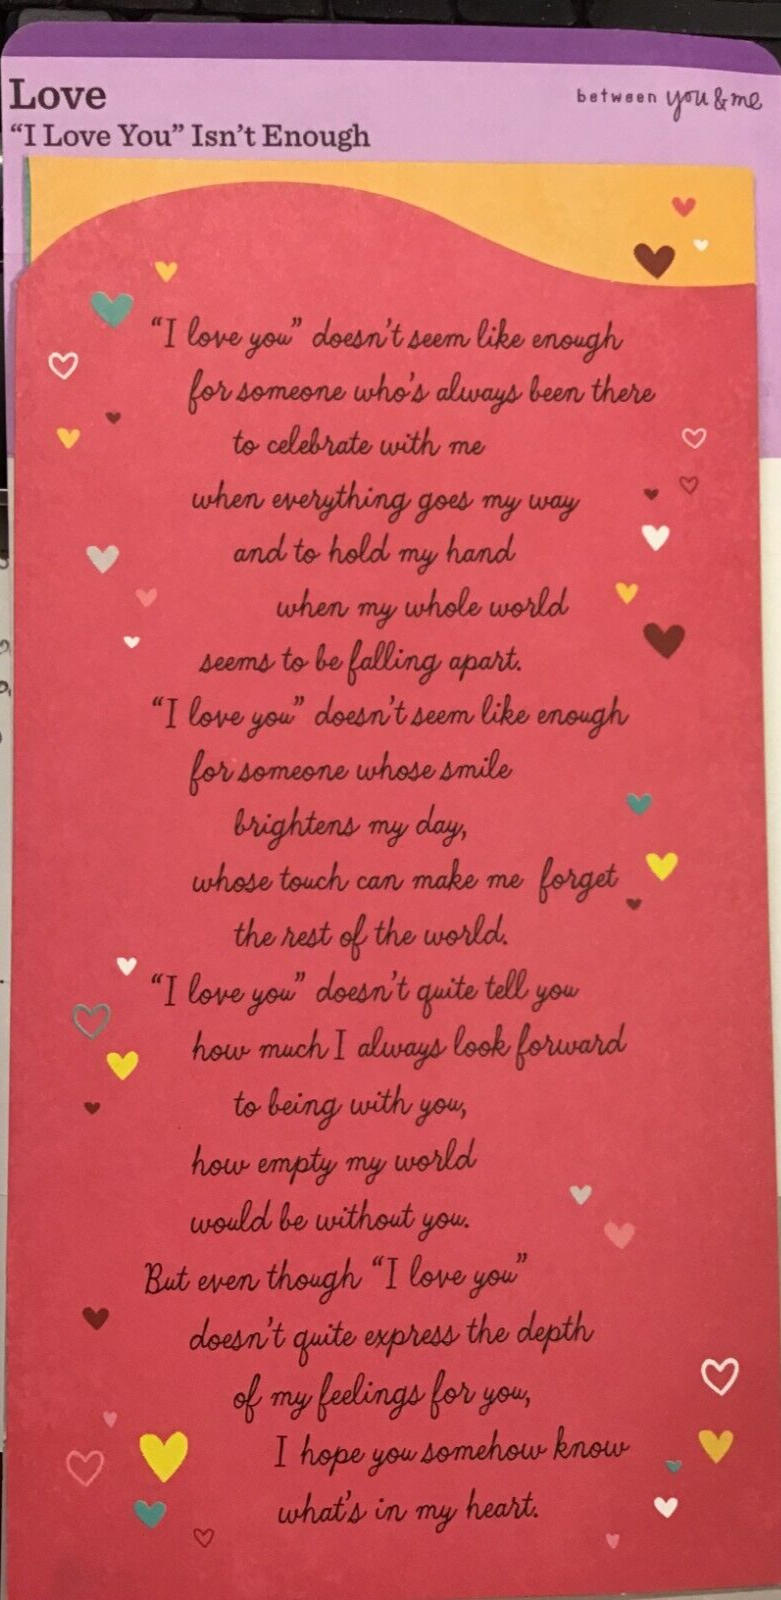 Love
between you & me
“I Love You” Isn’t Enough
“I love you” doesn’t seem like enough
for someone who’s always been there
to celebrate with me
when everything goes my way
and to hold my hand
when my whole world
seems to be falling apart.
“I love you” doesn’t seem like enough
for someone whose smile
brightens my day,
whose touch can make me forget
the rest of the world.
“I love you” doesn’t quite tell you
how much I always look forward
to being with you,
how empty my world
would be without you.
But even though “I love you”
doesn’t quite express the depth
of my feelings for you,
I hope you somehow know
what’s in my heart.